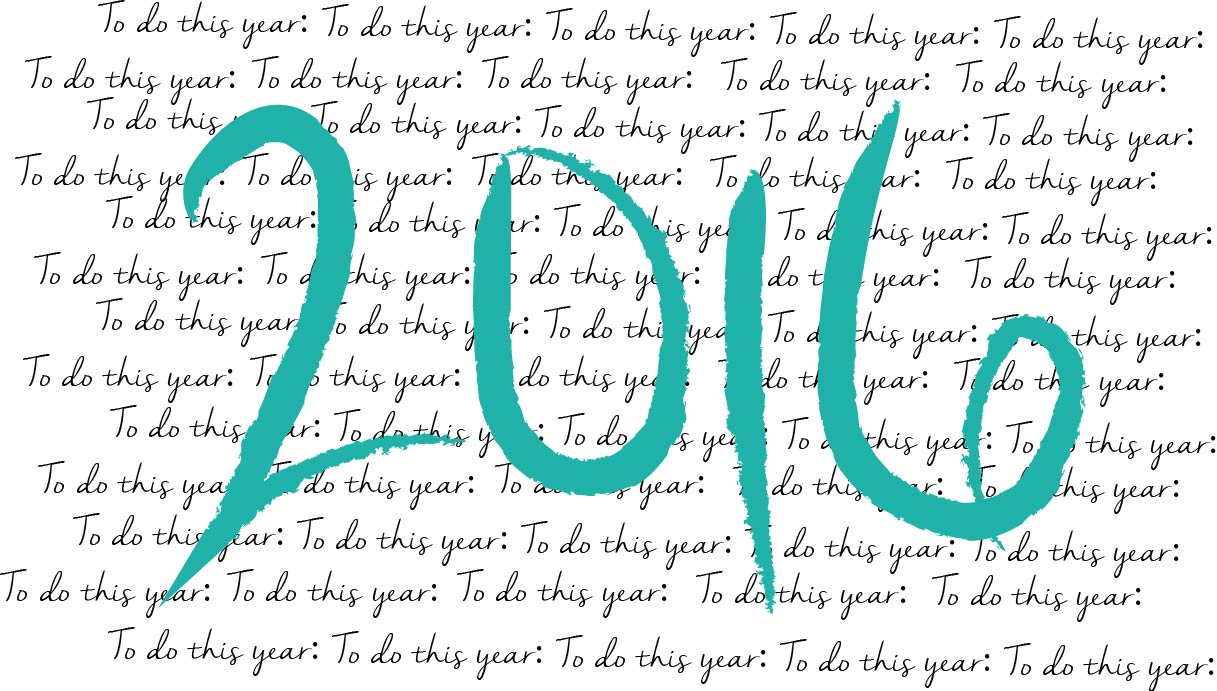 To do this year: To do this year: To do this year: To do this year: To do this year:
To do this year: To do this year: To do this year: To do this year: To do this year:
To do this year: To do this year: To do this year: To do this year: To do this year:
To do this year: To do this year: To do this year: To do this year: To do this year:
To do this year: To do this year: To do this year: To do this year: To do this year:
To do this year: To do this year: To do this year: To do this year: To do this year:
To do this year: To do this year: To do this year: To do this year: To do this year:
2016
To do this year: To do this year: To do this year: To do this year: To do this year:
To do this year: To do this year: To do this year: To do this year: To do this year:
To do this year: To do this year: To do this year: To do this year: To do this year:
To do this year: To do this year: To do this year: To do this year: To do this year:
To do this year: To do this year: To do this year: To do this year: To do this year:
To do this year: To do this year: To do this year: To do this year: To do this year: